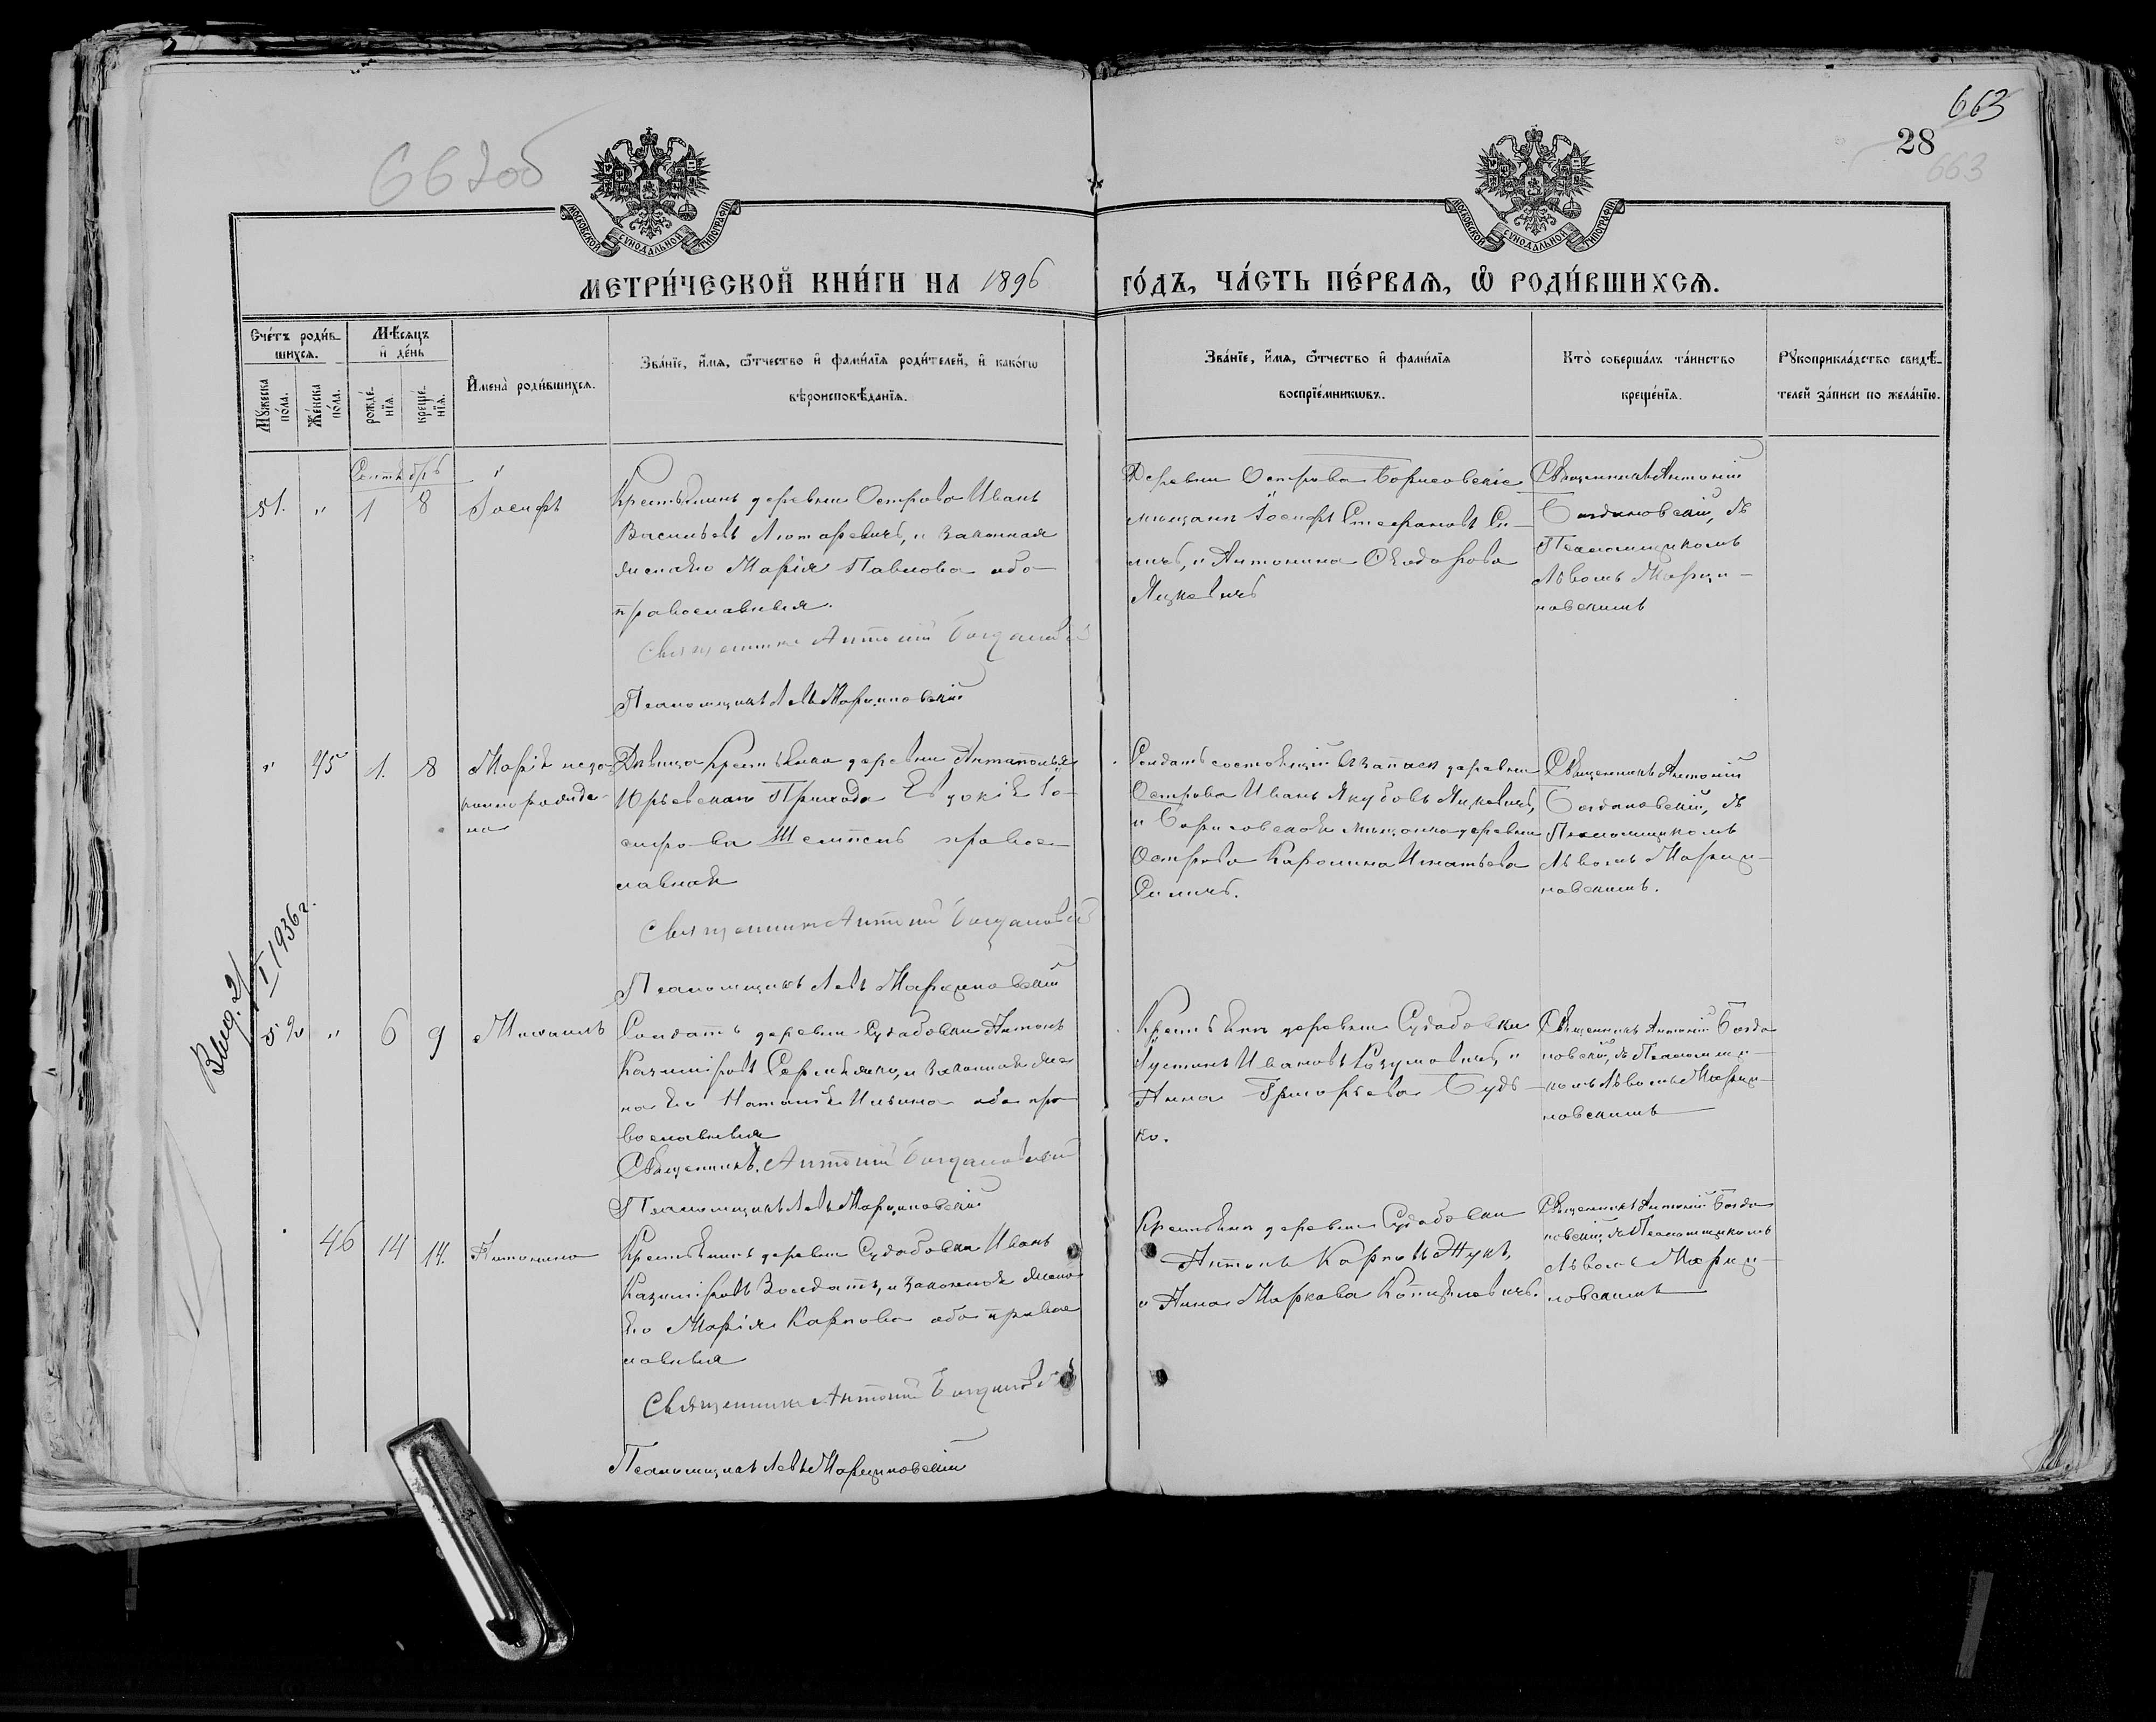 663
28
663
662об
МОСКОВСКОЙ СѴНОДАЛЬНОЙ ТИПОГРАФІИ
МОСКОВСКОЙ СѴНОДАЛЬНОЙ ТИПОГРАФІИ
МЕТРИ́ЧЕСКОЙ КНИ́ГИ НА 1896
ГО́ДЪ, ЧА́СТЬ ПЕ́РВАѦ, Ѿ РОДИ́ВШИХСѦ.
Сче́тъ роди́в-
шихсѧ.
Мꙋ́жеска по́ла.
Же́нска по́ла.
Мѣ́сяцъ
и҆ де́нь
рожде́-
нїѧ.
креще́-
нїѧ.
И҆мена̀ роди́вшихсѧ.
Зва́нїе, и҆́мѧ, ѻ҆́тчество и҆ фами́лїѧ роди́телей, и҆ како́гѡ
вѣроисповѣ́данїѧ.
Зва́нїе, и҆́мѧ, ѻ҆́тчество и҆ фами́лїѧ
воспрїе́мникѡвъ.
Кто̀ соверша́лъ та́инство
креще́нїѧ.
Рꙋкоприкла́дство свидѣ́-
телей за́писи по жела́нїю.
Сентябрь
51. " 1 8 Іосифъ
Крестьянинъ деревни Острова Иванъ
Васильевъ Лютаревичъ, и законная
жена его Марія Павлова оба
православныя.
Священникъ Антоній Богдановскій
Псаломщикъ Левъ Марциновскій
Деревни Острова Борисовскіе
мѣщане Іосифъ Стефановъ Си-
личъ, и Антонина Ѳеодорова
Яцкевичъ
Священникъ Антоній
Богдановскій, съ
Псаломщикомъ
Львомъ Марци-
новскимъ
" 45 1. 8 Марія неза-
коннорожде-
на
Дѣвица Крестьянка деревни Антополья
Юрьевскаго Прихода Евдокія Іо-
сифова православ-
лавная
Священникъ Антоній Богдановскій
Псаломщикъ Левъ Марциновскій
Солдатъ состоящій въ запасѣ деревни
Острова Иванъ Якубовъ Яцкевичъ,
и Борисовская мѣщанка деревни
Острова Каролина Игнатьева
Силичъ.
Священникъ Антоній
Богдановскій, съ
Псаломщикомъ
Львомъ Марци-
новскимъ.
Выд. 2/I 1936 г.
52 " 6 9 Михаилъ
Солдатъ деревни Судобовки Антонъ
Казиміровъ и законная же-
на его Наталія Ильина оба пра-
вославныя
Священникъ Антоній Богдановскій
Псаломщикъ Левъ Марциновскій
Крестьяне деревни Судобовки
Іустинъ Ивановъ Разумовичъ, и
Анна Григорьева Будь-
ко.
Священникъ Антоній Богда-
новскій, съ Псаломщи-
комъ Львомъ Марци-
новскимъ
46 14 14. Антонина
Крестьянинъ деревни Судобовки Иванъ
Казиміровъ Солдатъ, и законная жена
его Марія Карпова оба правос-
лавныя
Священникъ Антоній Богдановскій
Псаломщикъ Левъ Марциновскій
Крестьяне деревни Судобовки
Антонъ Карповъ Жукъ,
и Анна Маркова
Священникъ Антоній Богда-
новскій, съ Псаломщикомъ
Львомъ Марци-
новскимъ